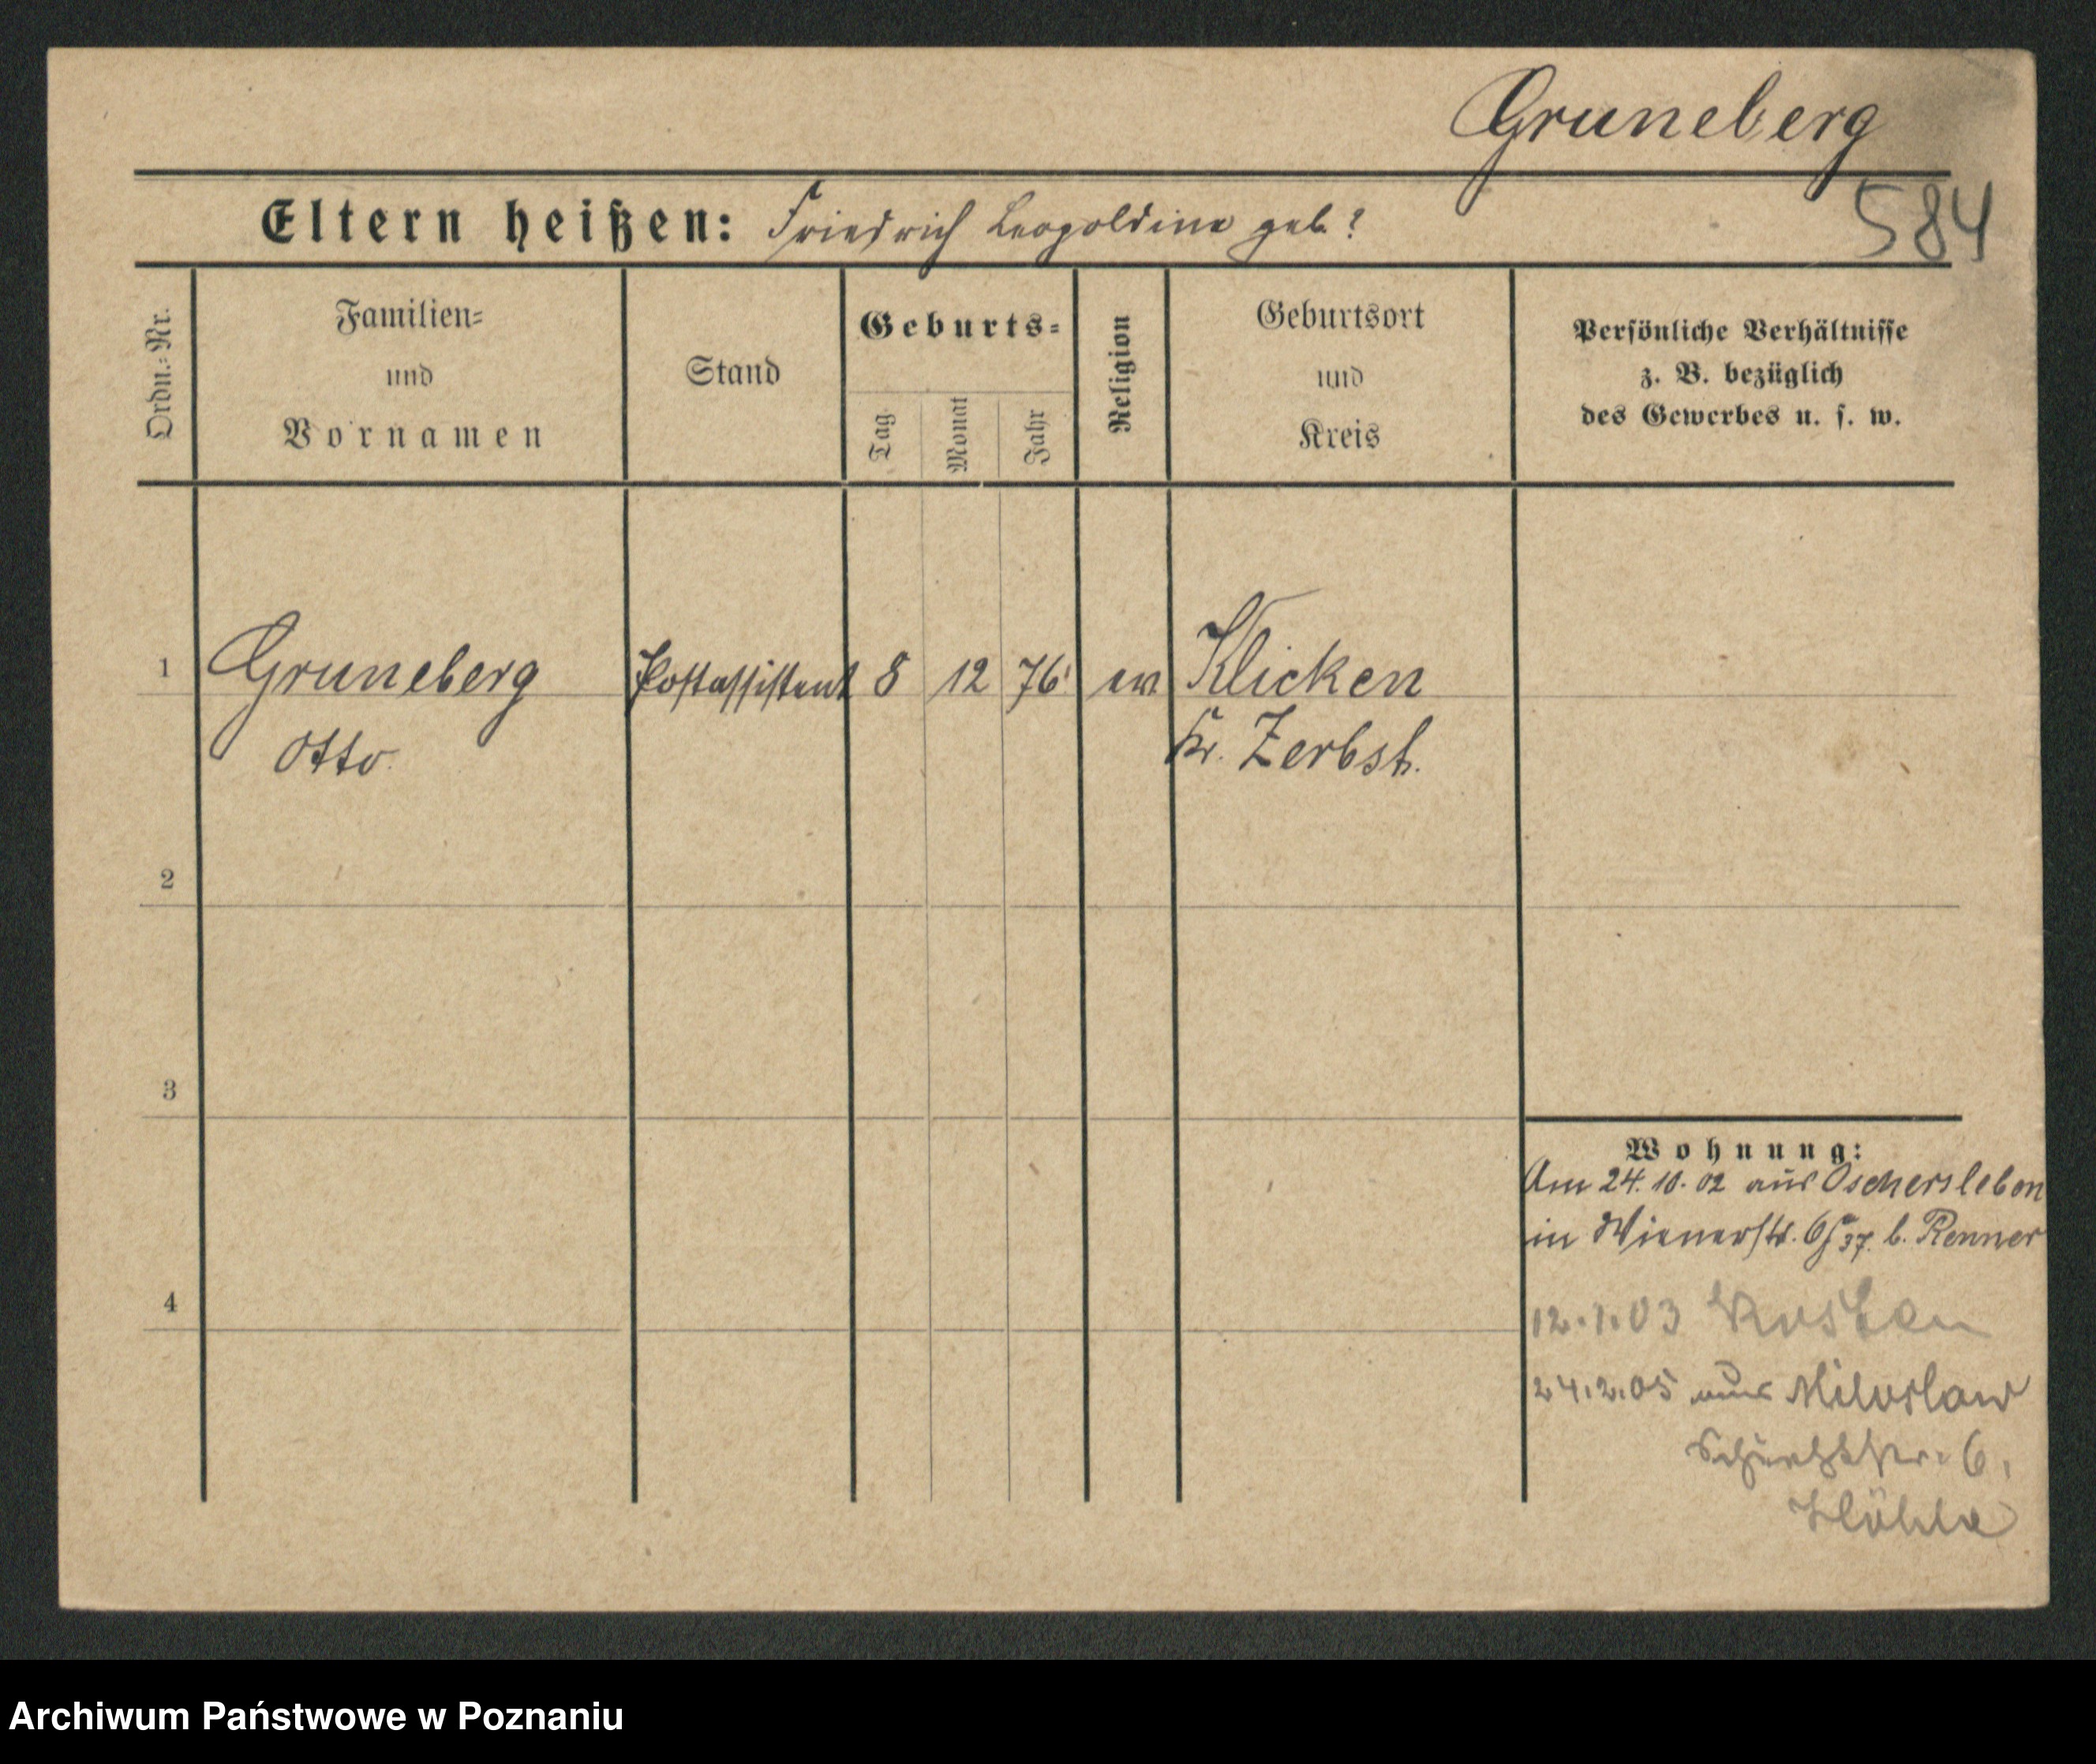 Gruneberg
584
Eltern heißen: Friedrich Leopoldine geb. ?
Ordn.-Nr.
Familien-
und
Vornamen
Stand
Geburts-
Tag
Monat
Jahr
Religion
Geburtsort
und
Kreis
Persönliche Verhältnisse
z. B. bezüglich
des Gewerbes u. s. w.
1 Gruneberg Postassistent 8 12 76 ev Klicken
Otto. Kr. Zerbst.
2
3
Wohnung:
Am 24.10.02 aus Oschersleben
in Wienerstr. 6 b. Renner
4
12.1.03 Kosten
24.2.05 aus Miloslaw
6.
Archiwum Państwowe w Poznaniu